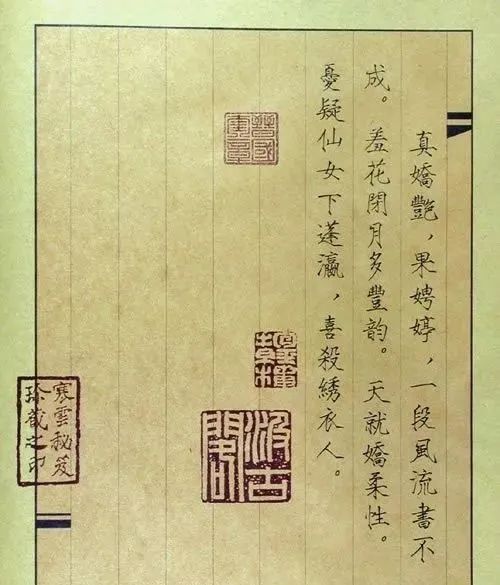 真嬌艷，果娉婷，一段風流書不
成。羞花閉月多豐韵。天就嬌柔性。
憂疑仙女下蓬瀛，喜殺綉衣人。
寒雲秘笈
珍藏之印